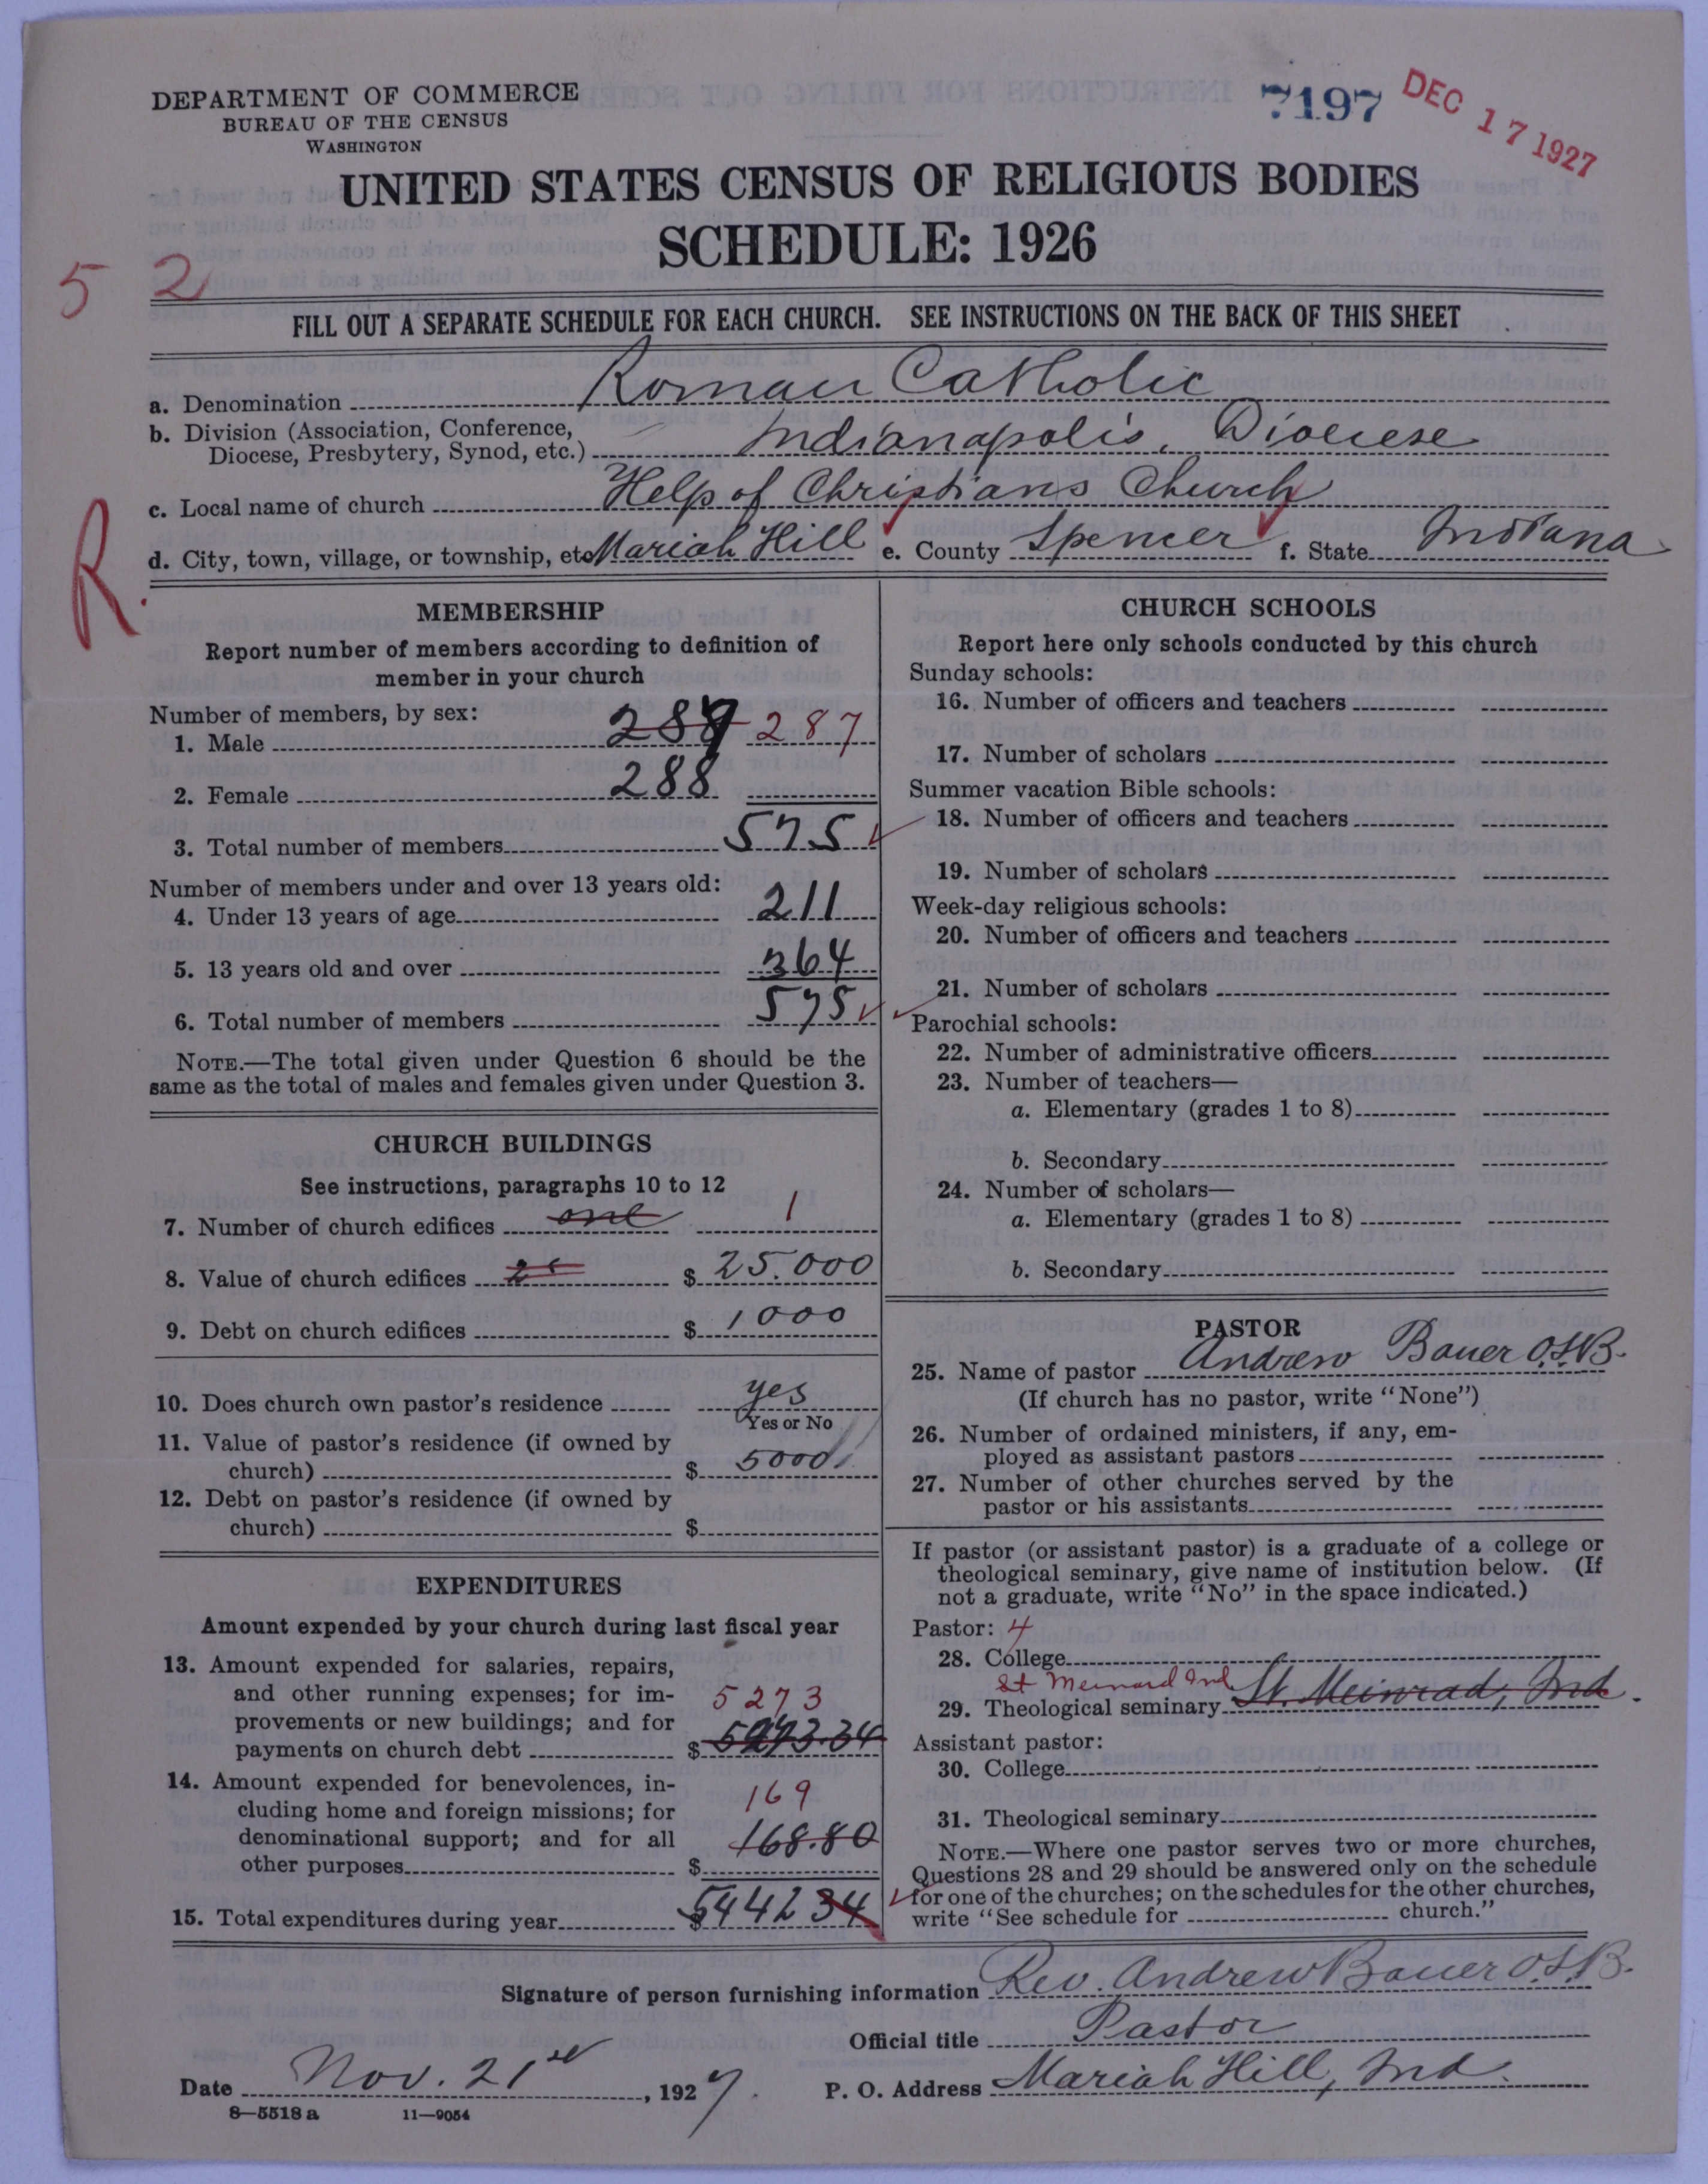 DEPARTMENT OF COMMERCE
BUREAU OF THE CENSUS
WASHINGTON
7197
DEC 17 1927
UNITED STATES CENSUS OF RELIGIOUS BODIES
SCHEDULE: 1926
52
FILL OUT A SEPARATE SCHEDULE FOR EACH CHURCH. SEE INSTRUCTIONS ON THE BACK OF THIS SHEET
a. Denomination Roman Catholic
b. Division (Association, Conference,
Diocese, Presbytery, Synod, etc.) Indianapolis, Diocese
c. Local name of church Help of Christians Church
R.
d. City, town, village, or township, etc Mariah Hill e. County Spencer f. State Indiana
MEMBERSHIP
Report number of members according to definition of
member in your church
Number of members, by sex:
1. Male 287 287
2. Female 288
3. Total number of members 575
Number of members under and over 13 years old:
4. Under 13 years of age 211
5. 13 years old and over 364
6. Total number of members 575
NOTE.—The total given under Question 6 should be the
same as the total of males and females given under Question 3.
CHURCH BUILDINGS
See instructions, paragraphs 10 to 12
7. Number of church edifices one 1
8. Value of church edifices 25 $ 25.000
9. Debt on church edifices $ 1000
10. Does church own pastor's residence yes
Yes or No
11. Value of pastor's residence (if owned by
church) $ 5000
12. Debt on pastor's residence (if owned by
church) $
EXPENDITURES
Amount expended by your church during last fiscal year
13. Amount expended for salaries, repairs,
and other running expenses; for im-
provements or new buildings; and for
payments on church debt $ 5273.34
5273
14. Amount expended for benevolences, in-
cluding home and foreign missions; for
denominational support; and for all
other purposes $ 168.80
169
15. Total expenditures during year $5442 34
CHURCH SCHOOLS
Report here only schools conducted by this church
Sunday schools:
16. Number of officers and teachers
17. Number of scholars
Summer vacation Bible schools:
18. Number of officers and teachers
19. Number of scholars
Week-day religious schools:
20. Number of officers and teachers
21. Number of scholars
Parochial schools:
22. Number of administrative officers
23. Number of teachers—
a. Elementary (grades 1 to 8)
b. Secondary
24. Number of scholars—
a. Elementary (grades 1 to 8)
b. Secondary
PASTOR
25. Name of pastor Andrew Bauer O.S.B.
(If church has no pastor, write "None")
26. Number of ordained ministers, if any, em-
ployed as assistant pastors
27. Number of other churches served by the
pastor or his assistants
If pastor (or assistant pastor) is a graduate of a college or
theological seminary, give name of institution below. (If
not a graduate, write "No" in the space indicated.)
Pastor: 4
28. College
St Meinard Ind
29. Theological seminary St. Meinrad, Ind.
Assistant pastor:
30. College
31. Theological seminary
NOTE.—Where one pastor serves two or more churches,
Questions 28 and 29 should be answered only on the schedule
for one of the churches; on the schedules for the other churches,
write "See schedule for church."
Signature of person furnishing information Rev. Andrew Bauer O.S.B.
Official title Pastor
Date Nov. 21st, 1927. P. O. Address Mariah Hill, Ind.
8—5518 a 11—9054